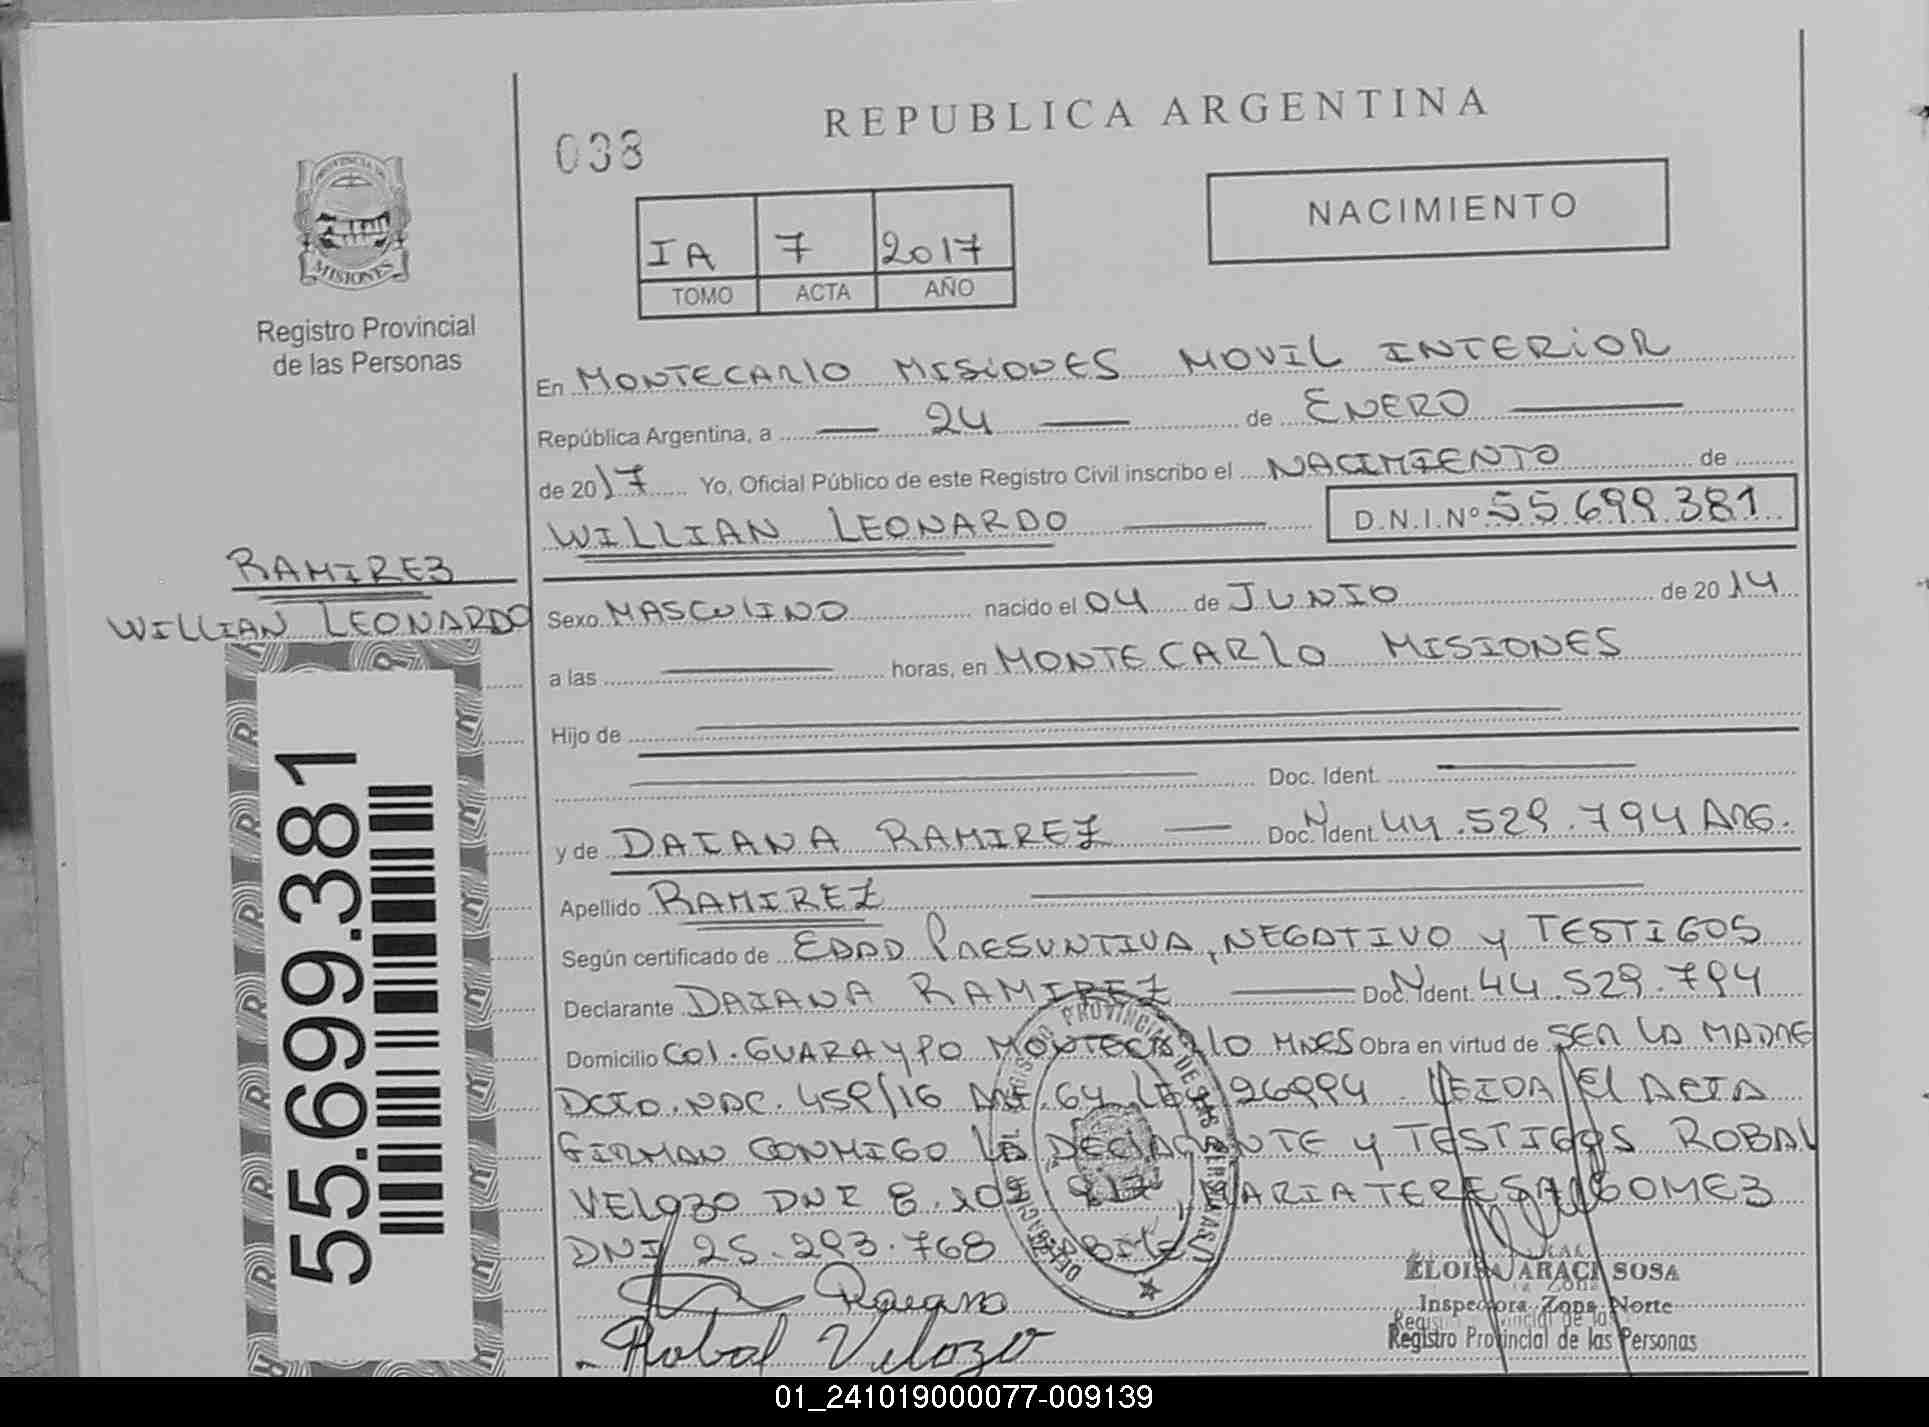 REPUBLICA ARGENTINA
038
NACIMIENTO
IA 7 2017
TOMO ACTA AÑO
PROVINCIA DE
MISIONES
Registro Provincial
de las Personas
En MONTECARLO MISIONES MOVIL INTERIOR
República Argentina, a — 24 — de ENERO —
de 2017 Yo, Oficial Público de este Registro Civil inscribo el NACIMIENTO de
WILLIAN LEONARDO — D.N.I.Nº 55.699.381
RAMIREZ
WILLIAN LEONARDO
55.699.381
Sexo MASCULINO nacido el 04 de JUNIO de 2014
a las — horas, en MONTECARLO MISIONES
Hijo de —
— Doc. Ident. —
y de DAIANA RAMIREZ — Doc. N Ident. 44.529.794 ARG.
Apellido RAMIREZ —
Según certificado de EDAD PRESUNTIVA, NEGATIVO y TESTIGOS
Declarante DAIANA RAMIREZ — Doc. N Ident. 44.529.794
Domicilio Col. GUARAYPO MONTECARLO MNES Obra en virtud de SER LA MADRE
DCTO. NAC. 459/16 ART. 64 LEY 26994. LEIDA El ACTA
FIRMAN CONMIGO LA DECLARANTE y TESTIGOS ROBAL
VELOZO DNI 8.109. MARIA TERESA GOMEZ
DNI 25.293.768
Robal Velozo
ELOISA ARACI SOSA
Inspectora Zona Norte
Registro Provincial de las Personas
01_241019000077-009139